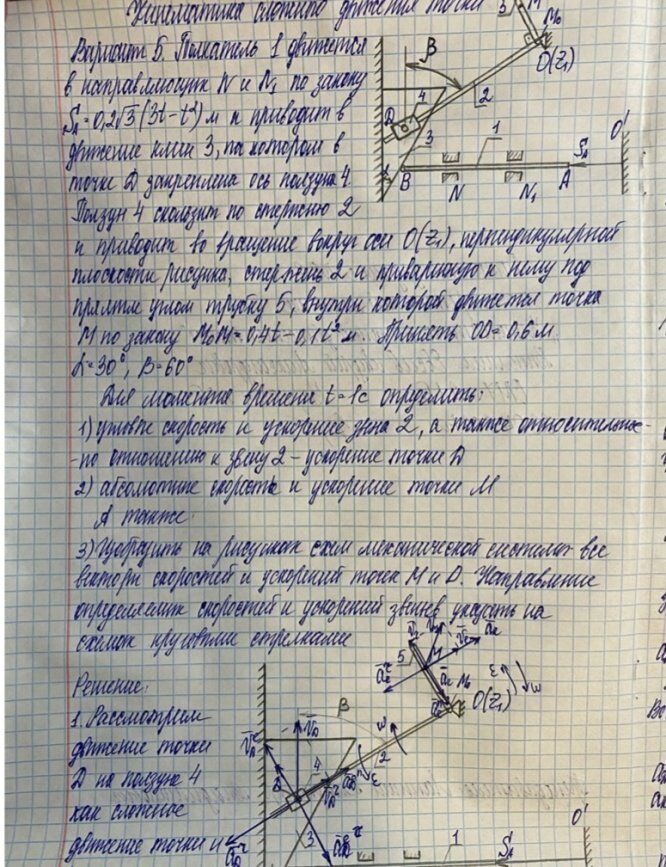 Кинематика сложного движения точки
Вариант 5. Толкатель 1 движется
в направляющих N и N₁ по закону
S_A = 0,2√3(3t-t²) м и приводит в
движение клин 3, на котором в
точке D закреплена ось ползуна 4.
Ползун 4 скользит по стержню 2
и приводит во вращение вокруг оси O(Z₁), перпендикулярной
плоскости рисунка, стержень 2 и приваренную к нему под
прямым углом трубку 5, внутри которой движется точка
M по закону M₀M = 0,4t - 0,1t² м. Принять OD = 0,6 м
α = 30°, β = 60°
Для момента времени t = 1с определить:
1) угловые скорость и ускорение звена 2, а также относительное-
-по отношению к звену 2 - ускорение точки D
2) абсолютные скорость и ускорение точки M
А также:
3) Изобразить на рисунках схем механической системы все
векторы скоростей и ускорений точек M и D. Направление
определяемых скоростей и ускорений звеньев указать на
схемах круговыми стрелками
Решение:
1. Рассмотрим
движение точки
D на ползуне 4
как сложное
движение точки и
3 M M₀
O(Z₁)
β
4 2
D
3
1 O'
α B N N₁ A S_A
5 M M₀
O(Z₁)
ε ω
β
ω
2
4 ε
D
3
1 O'
S_A